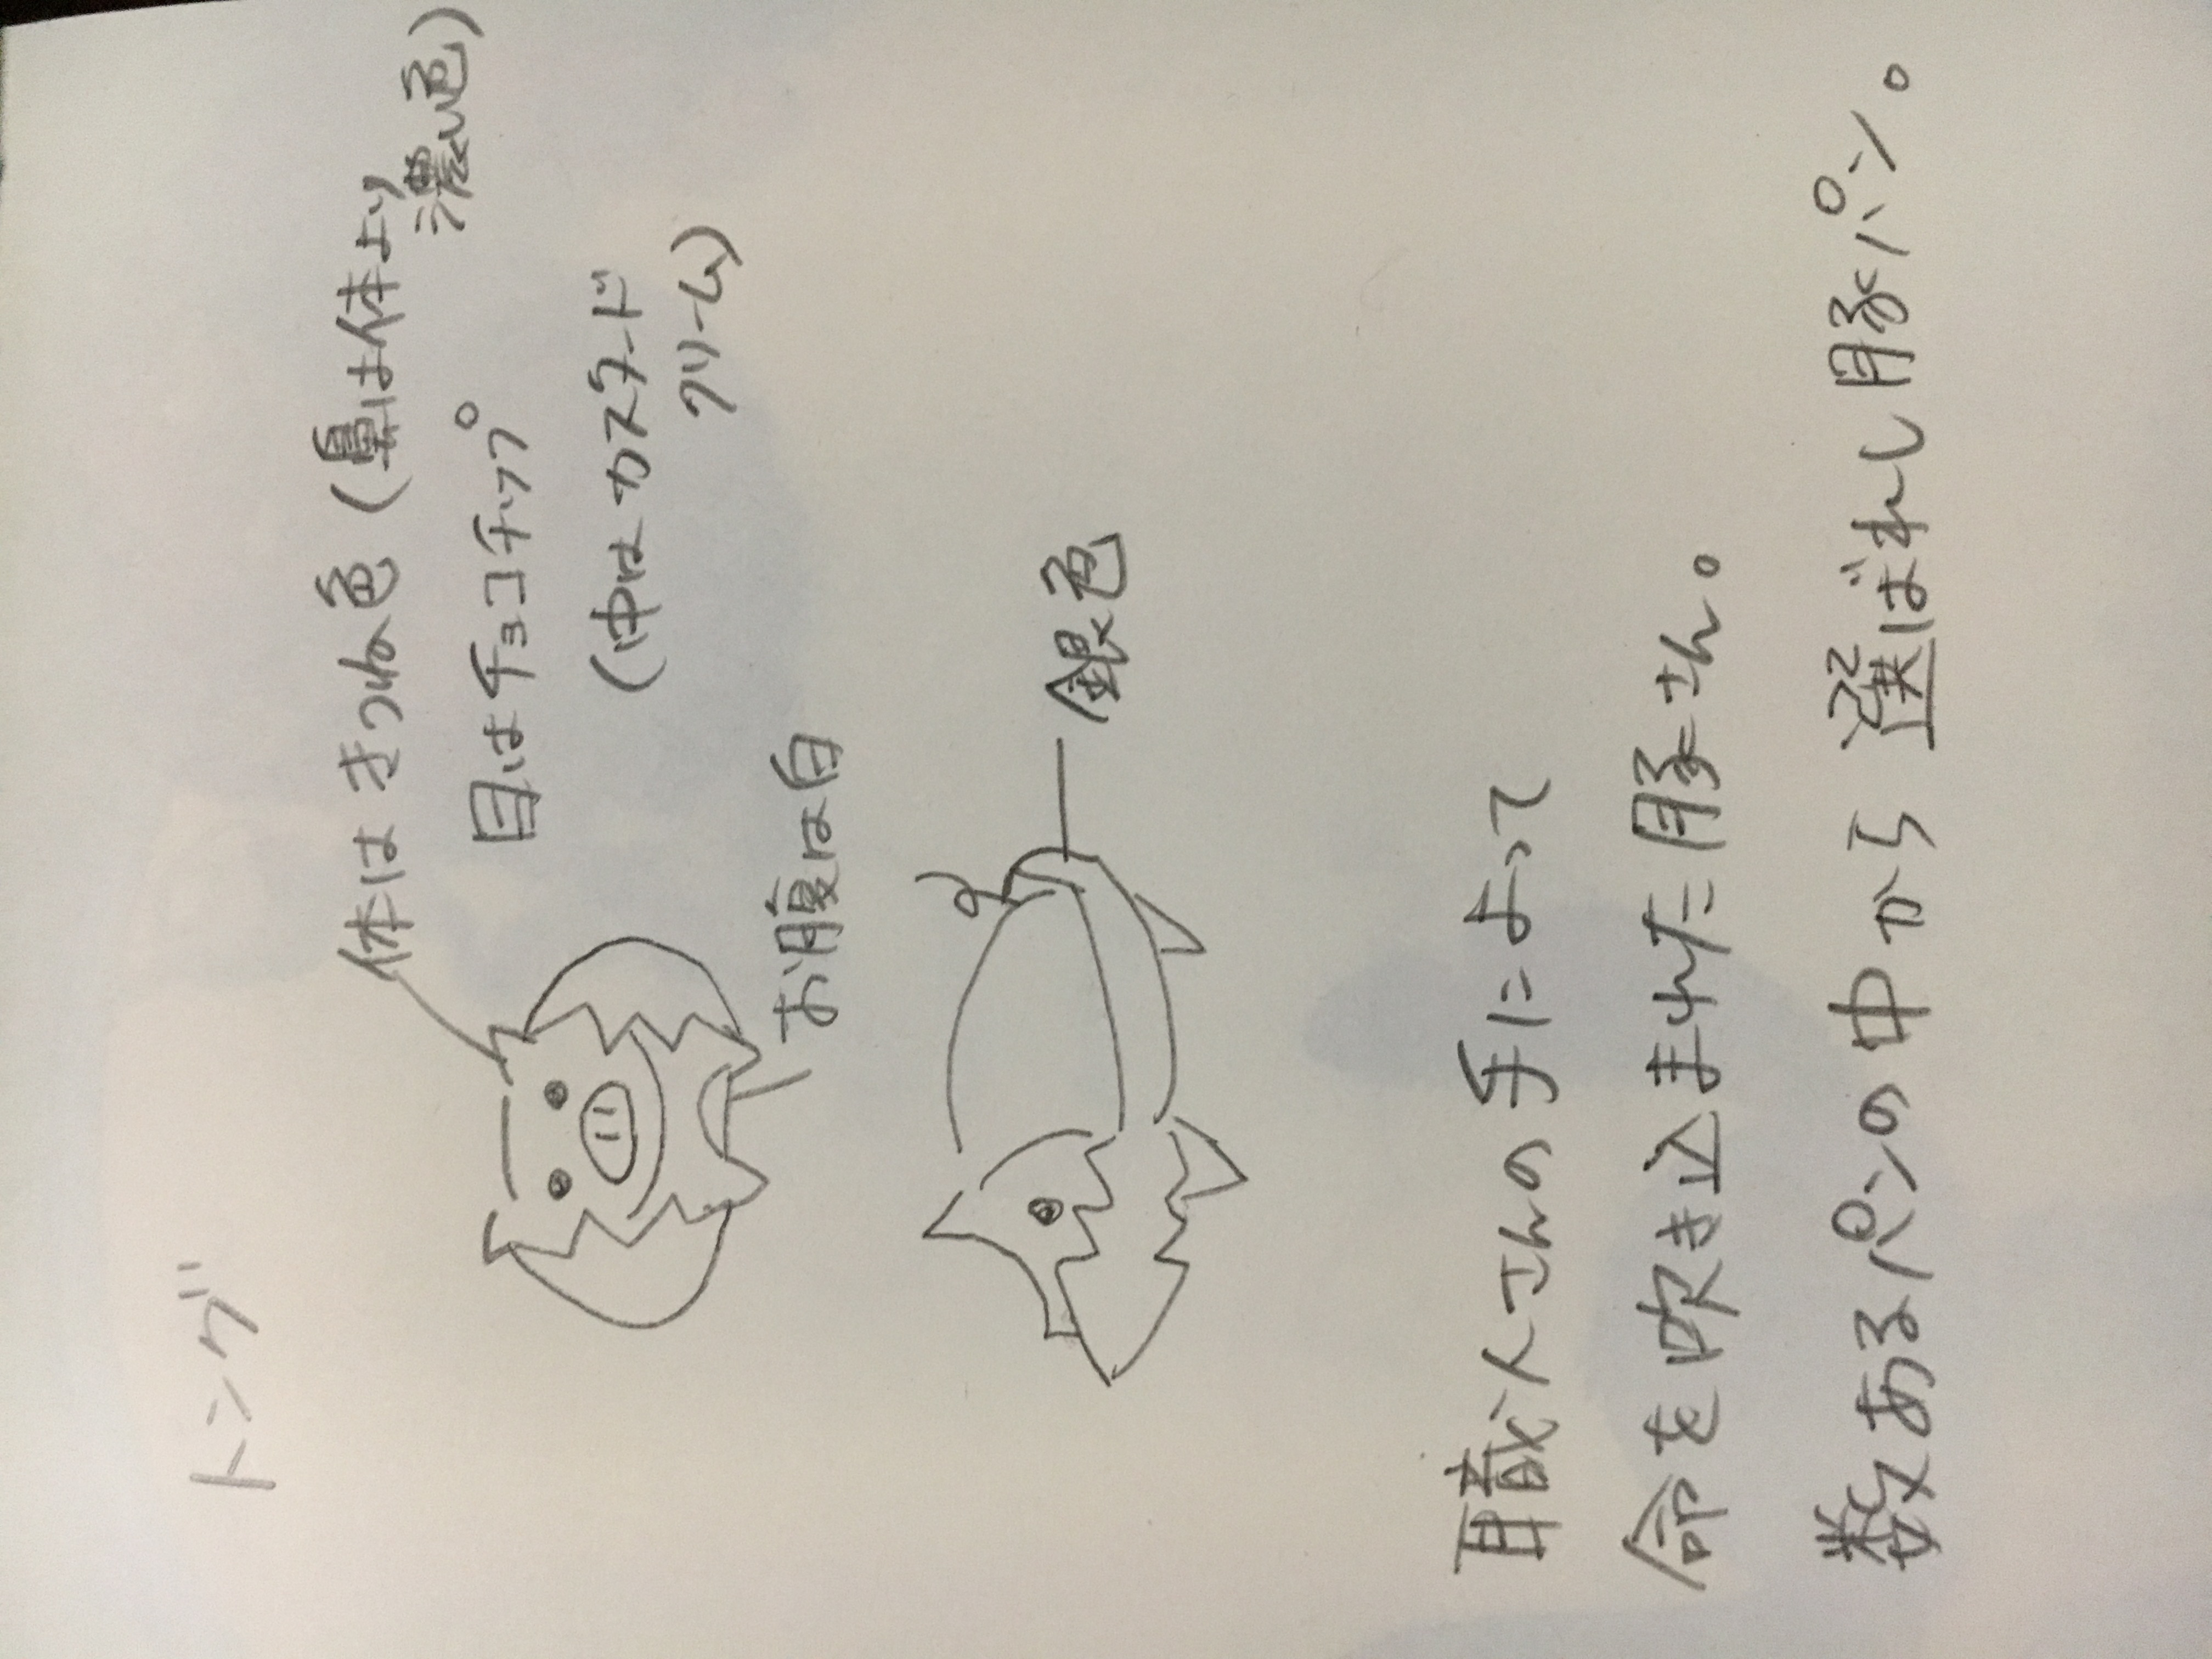 トング
体はきつね色(鼻は体より
濃い色)
目はチョコチップ
(中はカスタード
クリーム)
お腹は白
銀色
職人さんの手によって
命を吹き込まれた豚さん。
数あるパンの中から選ばれし豚パン。